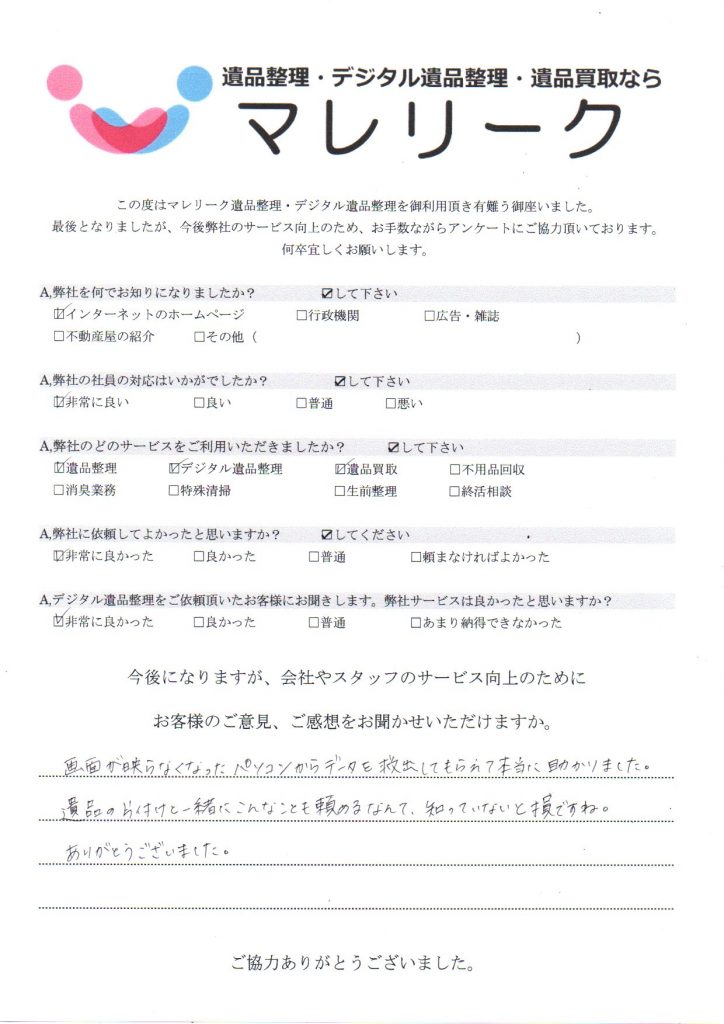 遺品整理・デジタル遺品整理・遺品買取なら
マレリーク
この度はマレリーク遺品整理・デジタル遺品整理を御利用頂き有難う御座いました。
最後となりましたが、今後弊社のサービス向上のため、お手数ながらアンケートにご協力頂いております。
何卒宜しくお願いします。
A,弊社を何でお知りになりましたか？ ☑して下さい
☑インターネットのホームページ □行政機関 □広告・雑誌
□不動産屋の紹介 □その他（ ）
A,弊社の社員の対応はいかがでしたか？ ☑して下さい
☑非常に良い □良い □普通 □悪い
A,弊社のどのサービスをご利用いただきましたか？ ☑して下さい
☑遺品整理 ☑デジタル遺品整理 ☑遺品買取 □不用品回収
□消臭業務 □特殊清掃 □生前整理 □終活相談
A,弊社に依頼してよかったと思いますか？ ☑してください
☑非常に良かった □良かった □普通 □頼まなければよかった
A,デジタル遺品整理をご依頼頂いたお客様にお聞きします。弊社サービスは良かったと思いますか？
☑非常に良かった □良かった □普通 □あまり納得できなかった
今後になりますが、会社やスタッフのサービス向上のために
お客様のご意見、ご感想をお聞かせいただけますか。
画面が映らなくなったパソコンからデータを救出してもらえて本当に助かりました。
遺品の片付けと一緒にこんなことも頼めるなんて、知っていないと損ですね。
ありがとうございました。
ご協力ありがとうございました。